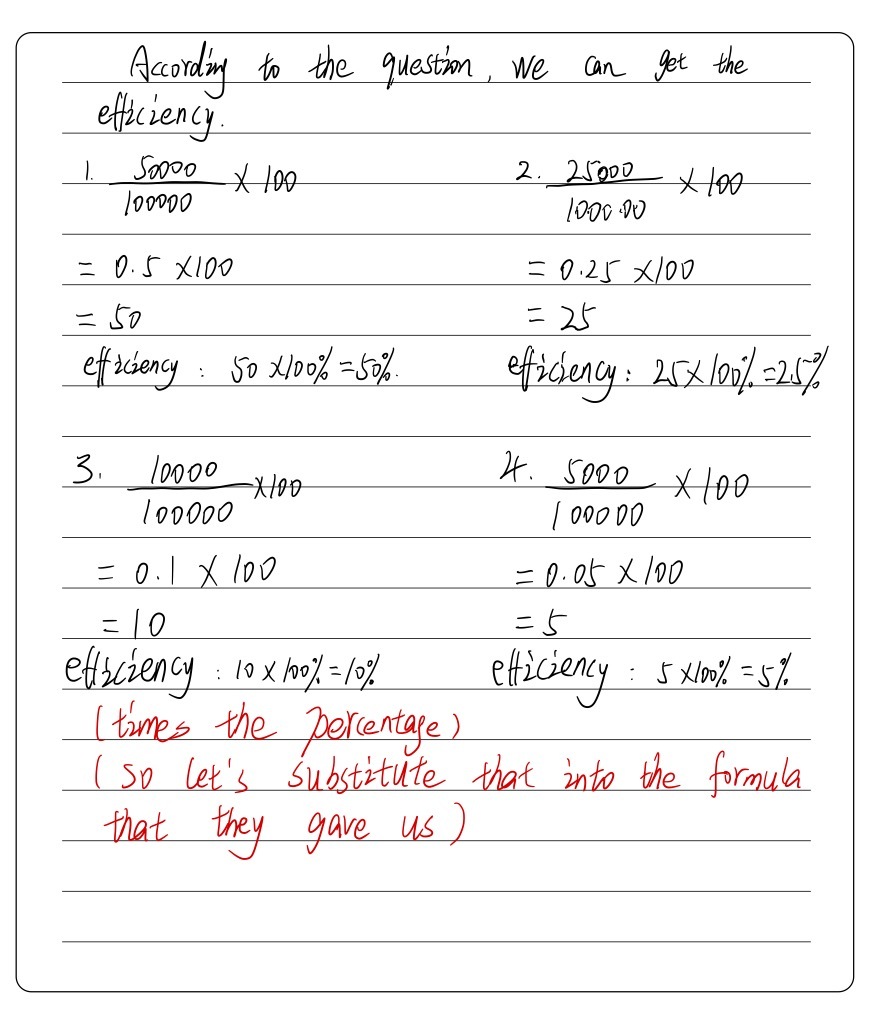 According to the question, we can get the
efficiency.
1. 50000/100000 × 100
= 0.5 ×100
= 50
efficiency : 50 ×100% =50%.
2. 25000/1000.00 × 100
= 0.25 ×100
= 25
efficiency : 25×100% =25%
3. 10000/100000 ×100
= 0.1 × 100
= 10
efficiency : 10 × 100% =10%
4. 5000/100000 × 100
= 0.05 ×100
= 5
efficiency : 5 ×100% =5%
(times the percentage)
(so let's substitute that into the formula
that they gave us)